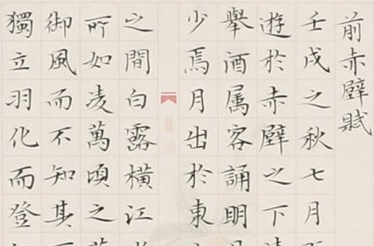 前赤壁賦
壬戌之秋七月
遊於赤壁之下
舉酒属客誦明
少焉月出於東
之間白露橫江
所如凌萬頃之
御風而不知其
獨立羽化而登